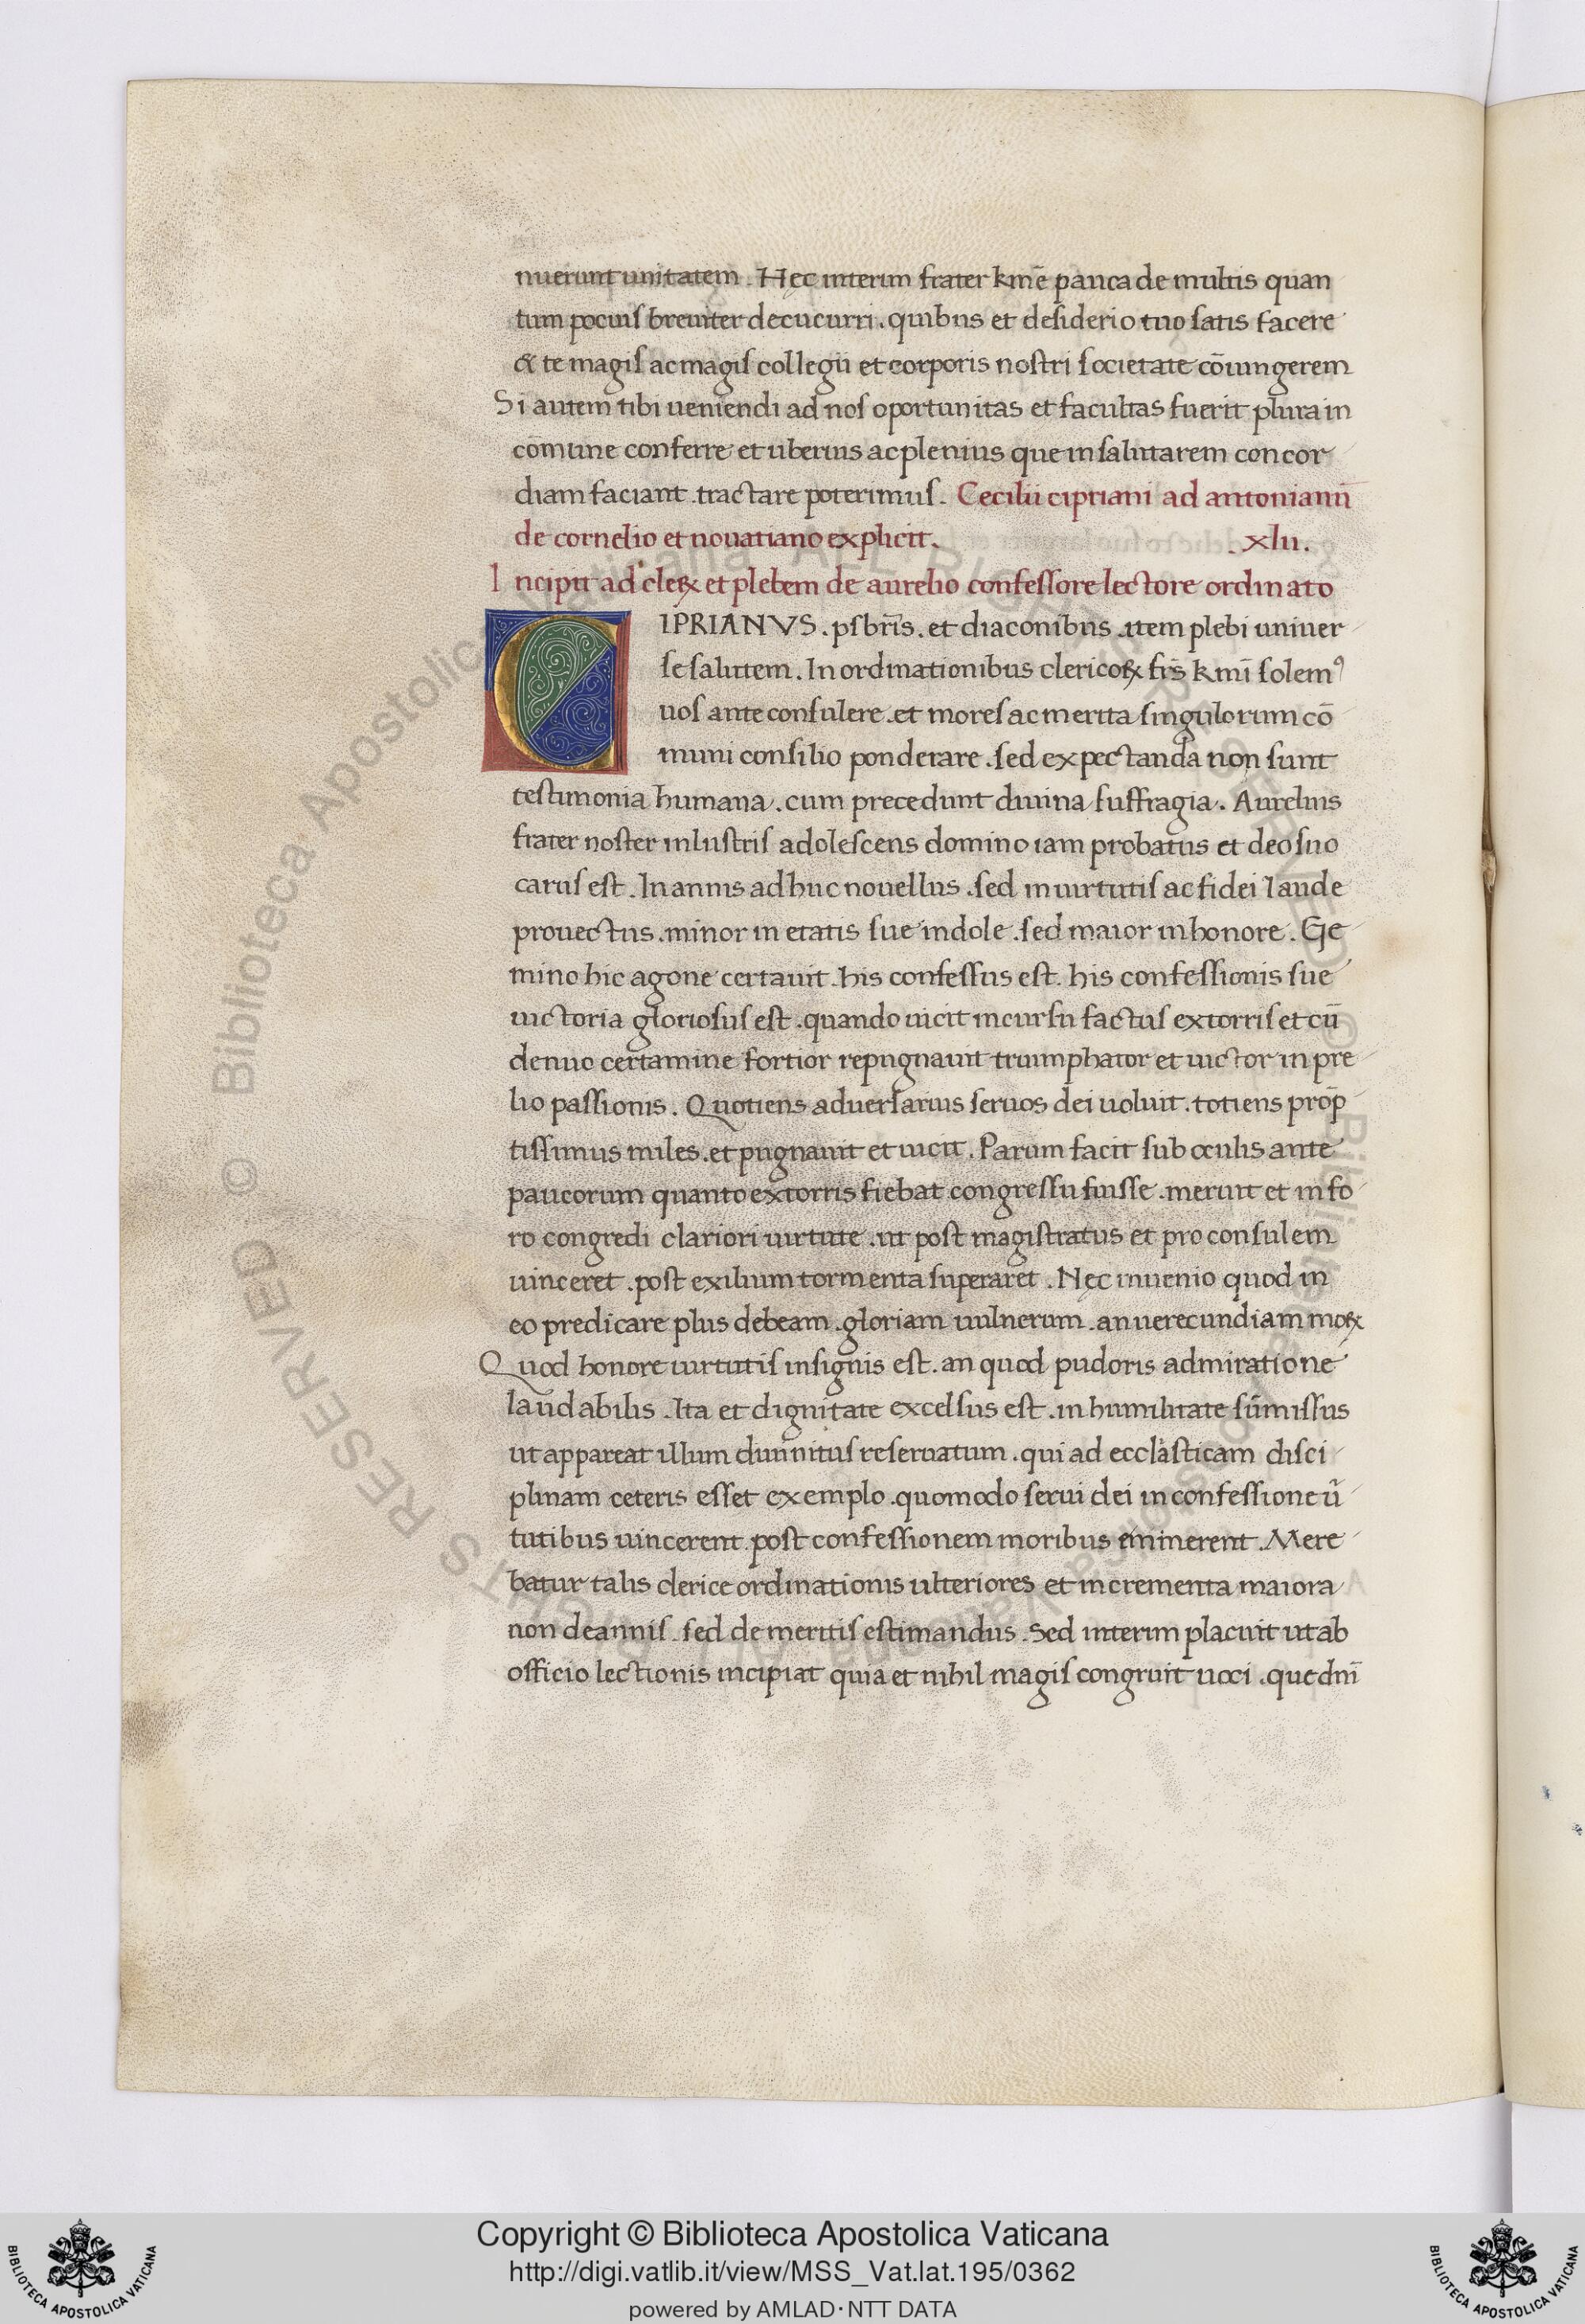 nuerunt unitatem . Hęc interim frater kmē pauca de multis quan
tum pocius breuiter decucurri . quibus et desiderio tuo satis facere
& te magis ac magis collegii et corporis nostri societate cōiungerem
Si autem tibi ueniendi ad nos oportunitas et facultas fuerit plura in
cōmune conferre et uberius ac plenius que in salutarem concor
diam faciant . tractare poterimus . Cecilii cipriani ad antonianū
de cornelio et nouatiano explicit . . xlii .
Incipit ad cleꝝ et plebem de aurelio confessore lectore ordinato
CIPRIANVS . psbrīs . et diaconibus . item plebi uniuer
se salutem . In ordinationibus clericoꝝ frs̄ kmī solemꝰ
uos ante consulere . et mores ac merita singulorum cō
muni consilio ponderare . sed expectanda non sunt
testimonia humana . cum precedunt diuina suffragia . Aurelius
frater noster inlustris adolescens domino iam probatus et deo suo
carus est . In annis adhuc nouellus . sed in uirtutis ac fidei laude
prouectus . minor in etatis sue indole . sed maior in honore . Ge
mino hic agone certauit . his confessus est . his confessionis sue
uictoria gloriosus est . quando uicit in cursu factus extorris et cū
denuo certamine fortior repugnauit triumphator et uictor in pre
lio passionis . Quotiens aduersarius seruos dei uoluit . totiens prōp
tissimus miles . et pugnauit et uicit . Parum facit sub oculis ante
paucorum quanto extorris fiebat congressu fuisse . meruit et in fo
ro congredi clariori uirtute . ut post magistratus et proconsulem
uinceret . post exilium tormenta superaret . Nęc inuenio quod in
eo predicare plus debeam . gloriam uulnerum . an uerecundiam moꝝ
Quod honore uirtutis insignis est . an quod pudoris admiratione
laudabilis . Ita et dignitate excelsus est . in humilitate sūmissus
ut appareat illum diuinitus reseruatum . qui ad ecclasticam disci
plinam ceteris esset exemplo . quomodo serui dei in confessione ū
tutibus uincerent . post confessionem moribus eminerent . Mere
batur talis clerice ordinationis ulteriores et incrementa maiora
non de annis . sed de meritis estimandus . Sed interim placuit ut ab
officio lectionis incipiat quia et nihil magis congruit uoci . que dnī
Copyright © Biblioteca Apostolica Vaticana
http://digi.vatlib.it/view/MSS_Vat.lat.195/0362
powered by AMLAD·NTT DATA
BIBLIOTECA APOSTOLICA VATICANA
BIBLIOTECA APOSTOLICA VATICANA